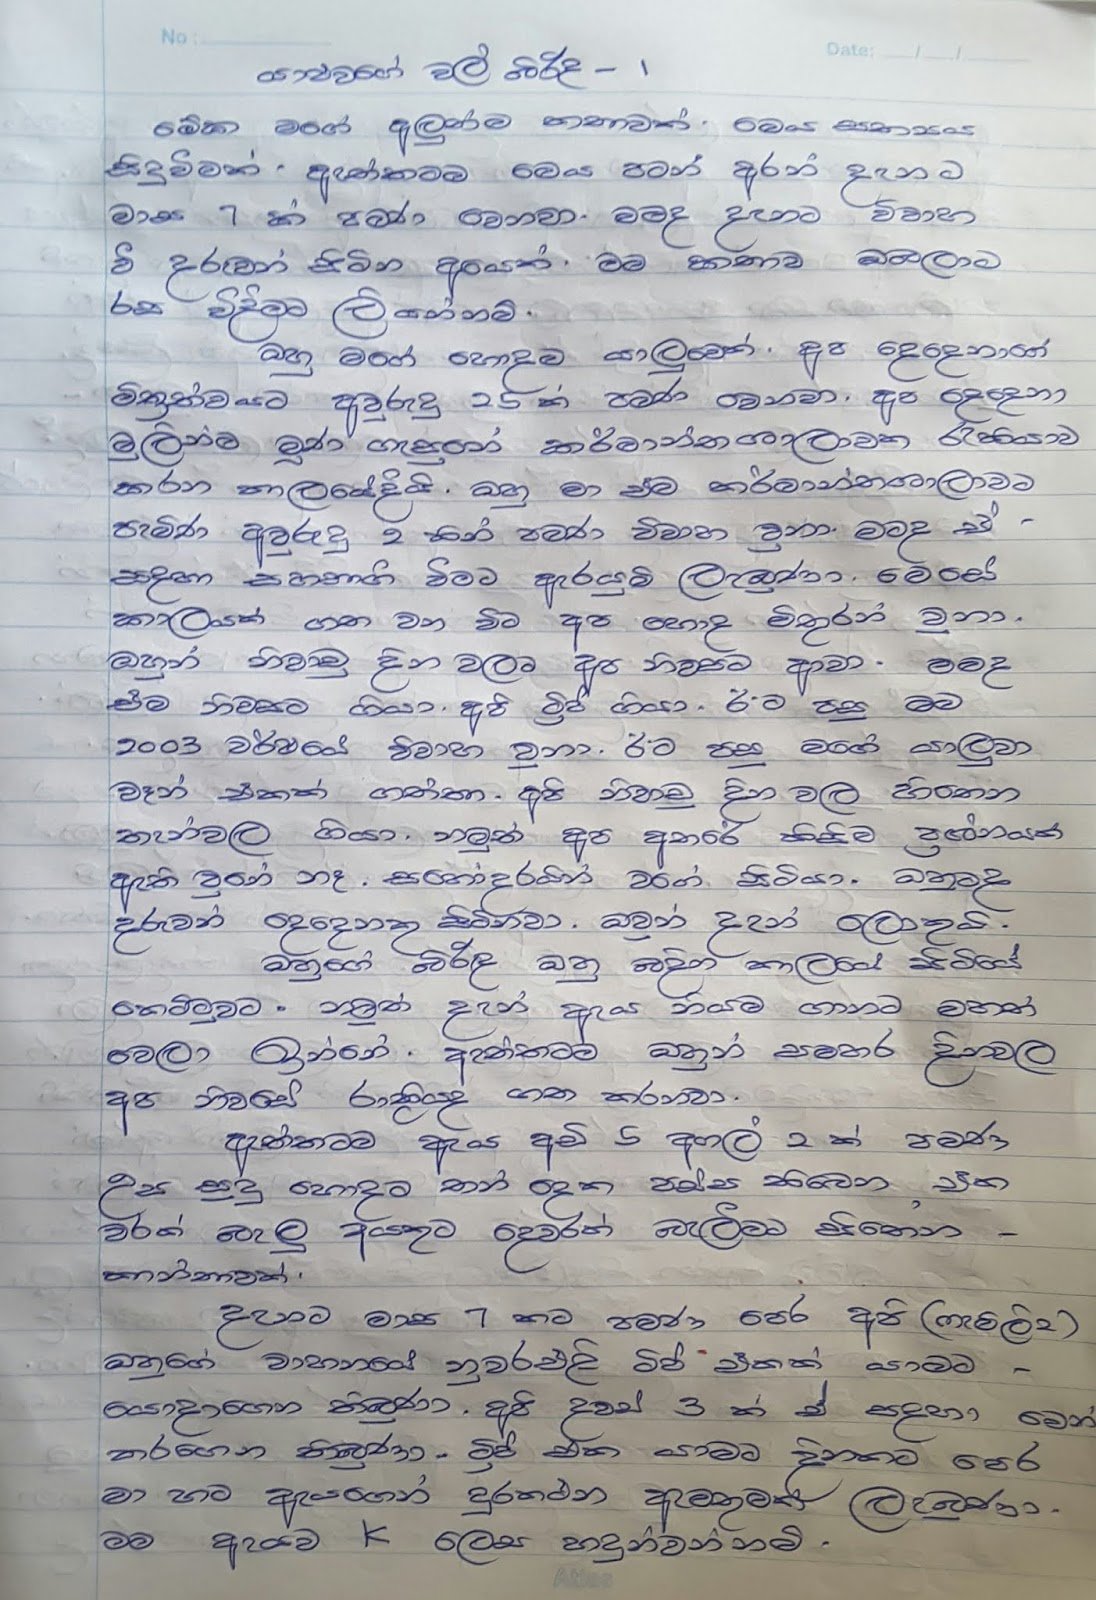 No :
Date: __/__/__
යාළුවගේ වල් බිරිඳ - 1
මේක මගේ අලුත්ම කතාවක්. මෙය සත්‍යය
සිදුවීමක්. ඇත්තටම මෙය පටන් අරන් දැනට
මාස 7 ක් පමණ වෙනවා. මමද දැනට විවාහ
වී දරුවන් සිටින අයෙක්. මම කතාව ඔබලාට
රස විඳීමට ලියන්නම්.
ඔහු මගේ හොඳම යාලුවෙක්. අප දෙදෙනාගේ
මිත්‍රත්වයට අවුරුදු 25 ක් පමණ වෙනවා. අප දෙදෙනා
මුලින්ම මුණ ගැසුනේ කර්මාන්තශාලාවක රැකියාව
කරන කාලයේදීයි. ඔහු මා එම කර්මාන්තශාලාවට
පැමිණ අවුරුදු 2 කින් පමණ විවාහ වුනා. මටද ඒ -
සඳහා සහභාගි වීමට ඇරයුම් ලැබුණා. මෙසේ
කාලයක් ගත වන විට අප හොඳ මිතුරන් වුනා.
ඔහුන් නිවාඩු දින වලට අප නිවසට ආවා. මමද
එම නිවසට ගියා. අපි ට්‍රිප් ගියා. ඊට පසු මම
2003 වර්ෂයේ විවාහ වුනා. ඊට පසු මගේ යාලුවා
වෑන් එකක් ගත්තා. අපි නිවාඩු දින වල හිතෙන
තැන්වල ගියා. නමුත් අප අතරේ කිසිම ප්‍රශ්නයක්
ඇති වුනේ නෑ. සහෝදරයින් වගේ සිටියා. ඔහුටද
දරුවන් දෙදෙනකු සිටිනවා. ඔවුන් දැන් ලොකුයි.
ඔහුගේ බිරිඳ ඔහු බඳින කාලයේ සිටියේ
කෙට්ටුවට. නමුත් දැන් ඇය නියම ගානට මහත්
වෙලා ඉන්නේ. ඇත්තටම ඔහුන් සමහර දිනවල
අප නිවසේ රාත්‍රියද ගත කරනවා.
ඇත්තටම ඇය අඩි 5 අඟල් 2 ක් පමණ
උස සුදු හොඳට තන් දෙක පස්ස තිබෙන එක
වරක් බැලු අයකුට දෙවරක් බැලීමට සිතෙන -
කාන්තාවක්.
දැනට මාස 7 කට පමණ පෙර අපි (ෆැමිලි 2)
ඔහුගේ වාහනයේ නුවරඑළි ට්‍රිප් එකක් යාමට -
යොදාගෙන තිබුණා. අපි දවස් 3 ක් ඒ සඳහා වෙන්
කරගෙන තිබුණා. ට්‍රිප් එක යාමට දිනකට පෙර
මා හට ඇයගෙන් දුරකථන ඇමතුමක් ලැබුණා.
මම ඇයව K ලෙස හඳුන්වන්නම්.
Atlas